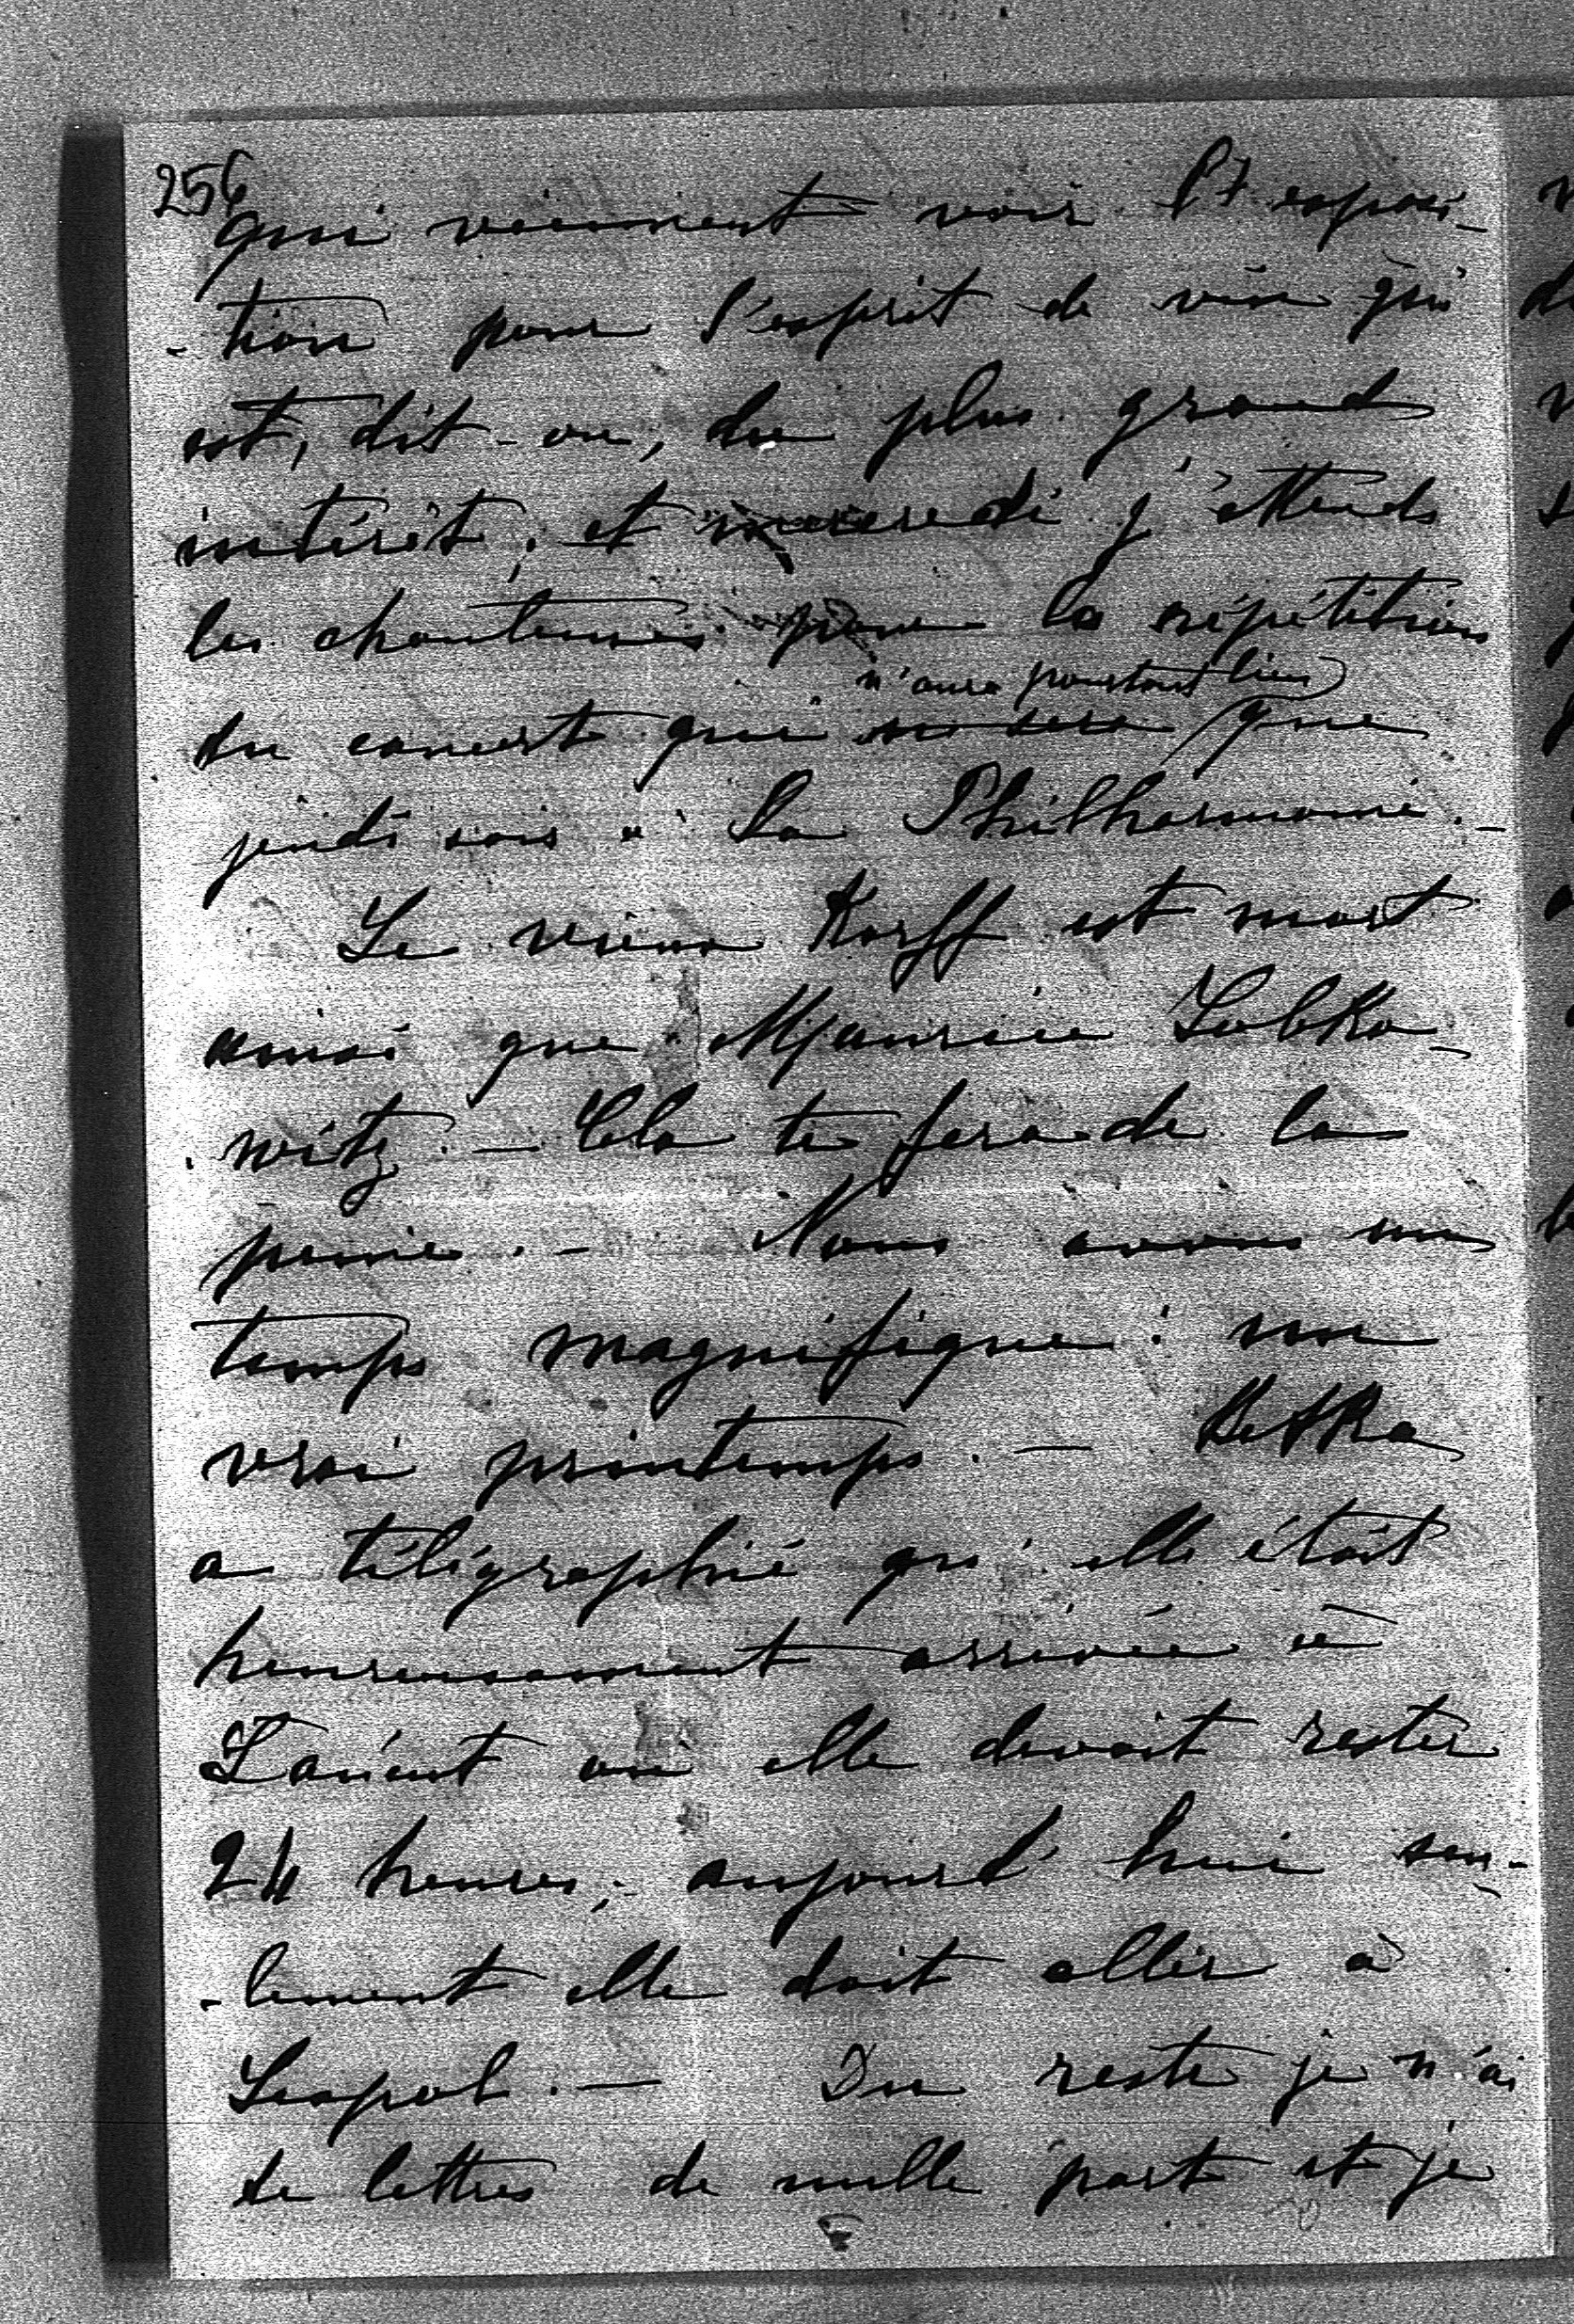 256
qui viennent voir l'exposi-
-tion pour l'esprit de vin qui
est, dit-on, du plus grand
intérêt; et mercredi j'attends
les chanteuses pour la répétition
n'aura pourtant lieu
du concert qui ne sera que
jeudi soir à la Philharmonie.-
Le vieux Korff est mort
ainsi que Maurice Lobko-
-witz. - Cela te fera de la
peine. - Nous avons un
temps magnifique: un
vrai printemps. - Betka
a télégraphié qu'elle était
heureusement arrivée à
Łańcut où elle devait rester
24 heures; aujourd'hui seu-
-lement elle doit aller à
Leopol. - Du reste je n'ai
de lettres de nulle part et je